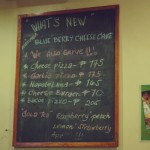 WHAT'S NEW
BLUE BERRY CHEESE CAKE
We Also Serve !!!
* Cheese pizza - ₱ 175
* Garlic pizza - ₱ 175
* Hawaiian - ₱ 145
* Cheese Burger - ₱ 70
* pizza - 205
Raspberry peach
Lemon Strawberry